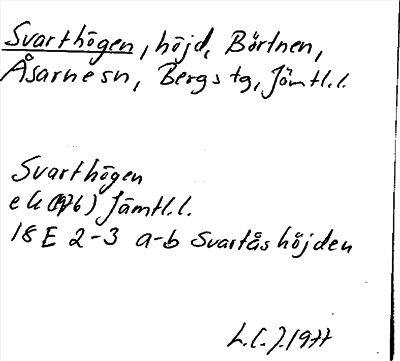 Svarthögen, höjd, Börtnen,
Åsarne sn, Bergs tg, Jämtl.l.
Svarthögen
ek (1976) Jämtl.l.
18 E 2-3 a-b Svartåshöjden
L.C.J. 1977